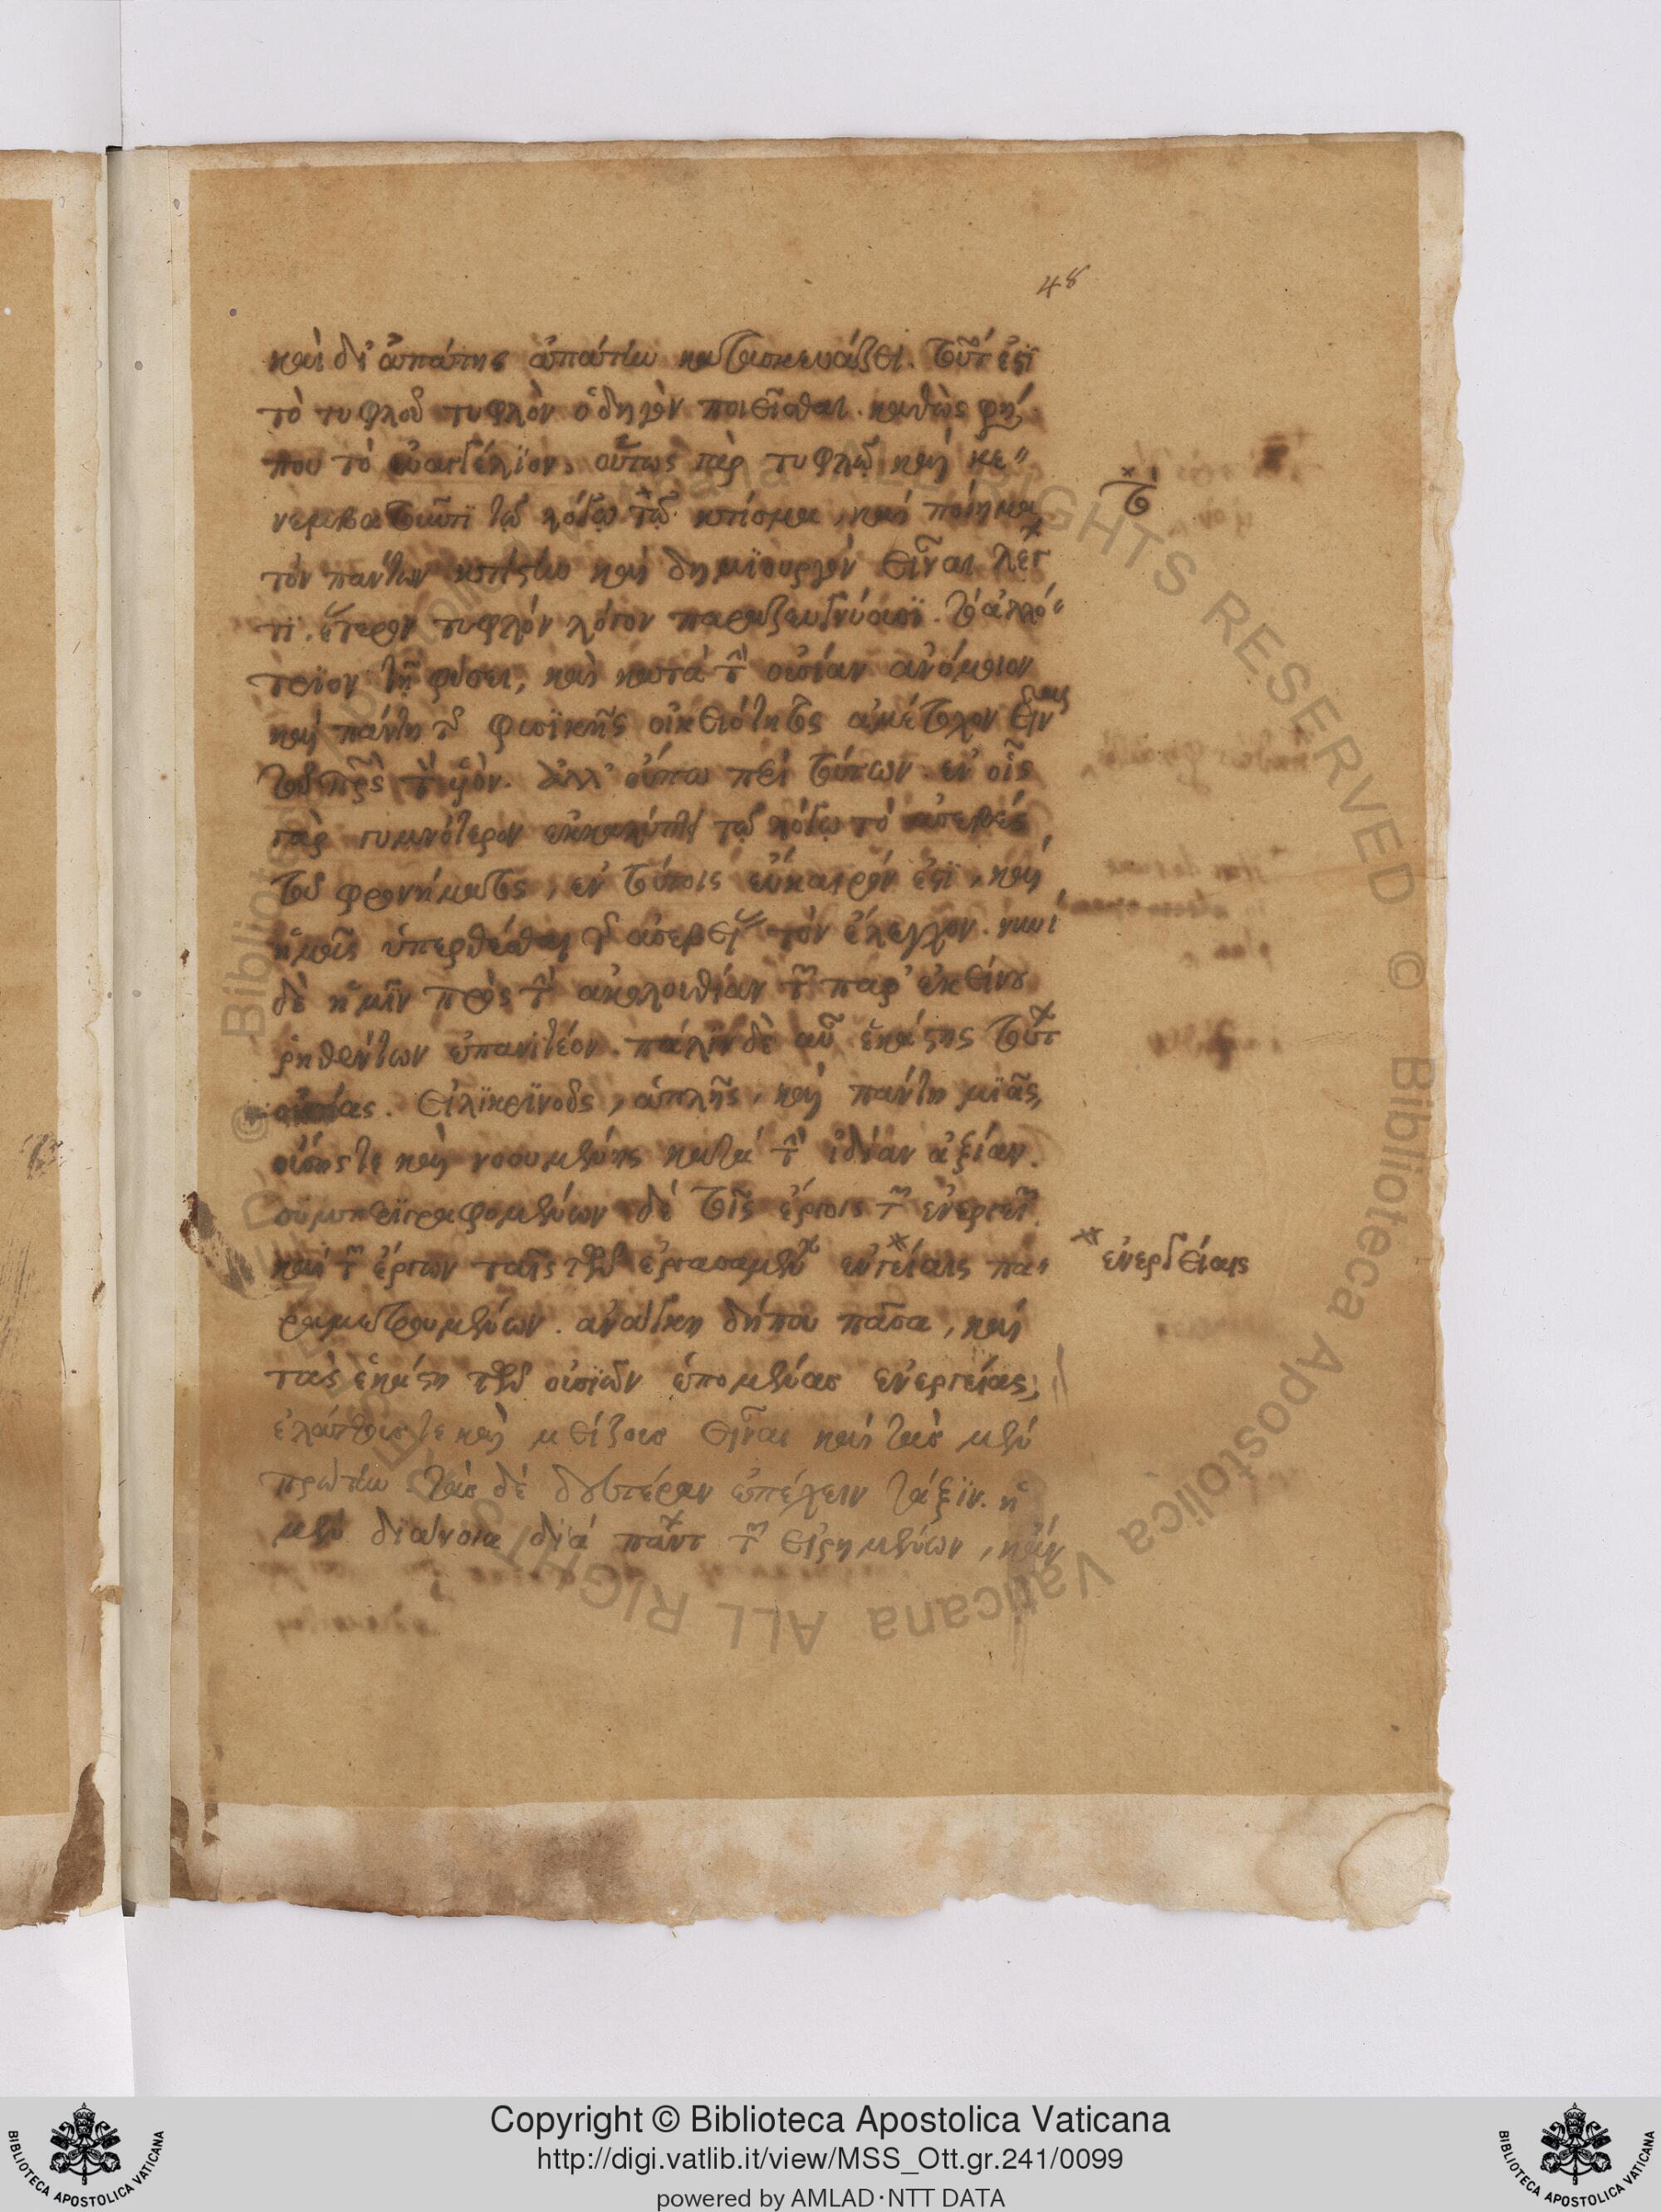 48
καὶ δι' ἀπάτης ἀπάτην κατασκευάζει. τοῦτ' ἐστὶ
τὸ τυφλοῦ τυφλὸν ὁδηγὸν ποιεῖσθαι. καθὼς φησί
που τὸ εὐαγγέλιον. οὕτως γὰρ τυφλῷ καὶ κε
νεμβατοῦντι τῷ λόγῳ τῷ κτίσμα, καὶ ποίημα
τὸ
τὸν πάντων κτίστην καὶ δημιουργὸν εἶναι λέγον
τι. ἕτερον τυφλὸν λόγον παραζευγνύουσι. τὸ ἀλλό
τριον τῇ φύσει, καὶ κατὰ τὴν οὐσίαν ἀνόμοιον
καὶ πάντη τῆς φυσικῆς οἰκειότητος ἀμέτοχον εἶναι
τοῦ πρὸς τὸν υἱόν. ἀλλ' οὔπω περὶ τούτων. ἐν οἷς
γὰρ γυμνότερον ἐκκαλύπτει τῷ λόγῳ τὸ ἀσεβὲς
τοῦ φρονήματος, ἐν τούτοις εὔκαιρόν ἐστι, καὶ
ἡμᾶς ὑπερθέσθαι τῆς ἀσεβείας τὸν ἔλεγχον. νυνὶ
δὲ ἡμῖν πρὸς τὴν ἀκολουθίαν τῶν παρ' ἐκείνου
ῥηθέντων ἐπανιτέον. πάλιν δὲ αὖ ἑκάστης τούτων
οὐσίας. εἰλικρινοῦς, ἁπλῆς, καὶ πάντη μιᾶς,
οὔσης τε καὶ νοουμένης κατὰ τὴν ἰδίαν ἀξίαν.
συμπεριγραφομένων δὲ τοῖς ἔργοις τῶν ἐνεργειῶν.
καὶ τῶν ἔργων ταῖς τῶν ἐργασαμένων ἐνγείαις πα
ἐνεργείαις
ραμετρουμένων. ἀνάγκη δήπου πᾶσα, καὶ
τὰς ἑκάστη τῶν οὐσιῶν ἑπομένας ἐνεργείας,
ἐλάττους τε καὶ μείζους εἶναι καὶ τὰς μὲν
πρώτην τὰς δὲ δευτέραν ἐπέχειν τάξιν. ἡ
μὲν διάνοια διὰ πάντων τῶν εἰρημένων, κἂν